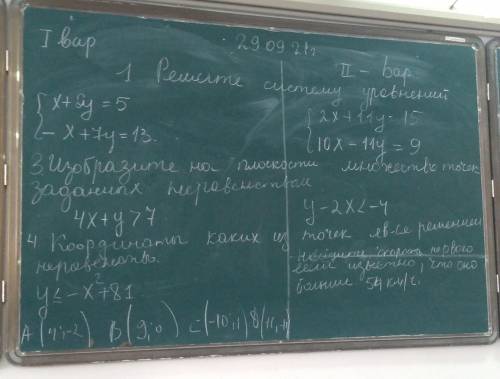 I вар
29.09.21г
1 Решите систему уравнений
{ x+5y=5
- x+7y=13.
II - вар
{ 2x+11y=15
10x-11y=9
3. Изобразите на плоскости множество точек
заданных неравенством
4x+y>7
y-2x<-4
4. Координаты каких из точек яв-се решением
неравенства.
y≤-x²+81
A(4;-2), B(9;0) C(-10;1)
скорость первого
если известно, что оно
больше 54 км/ч.